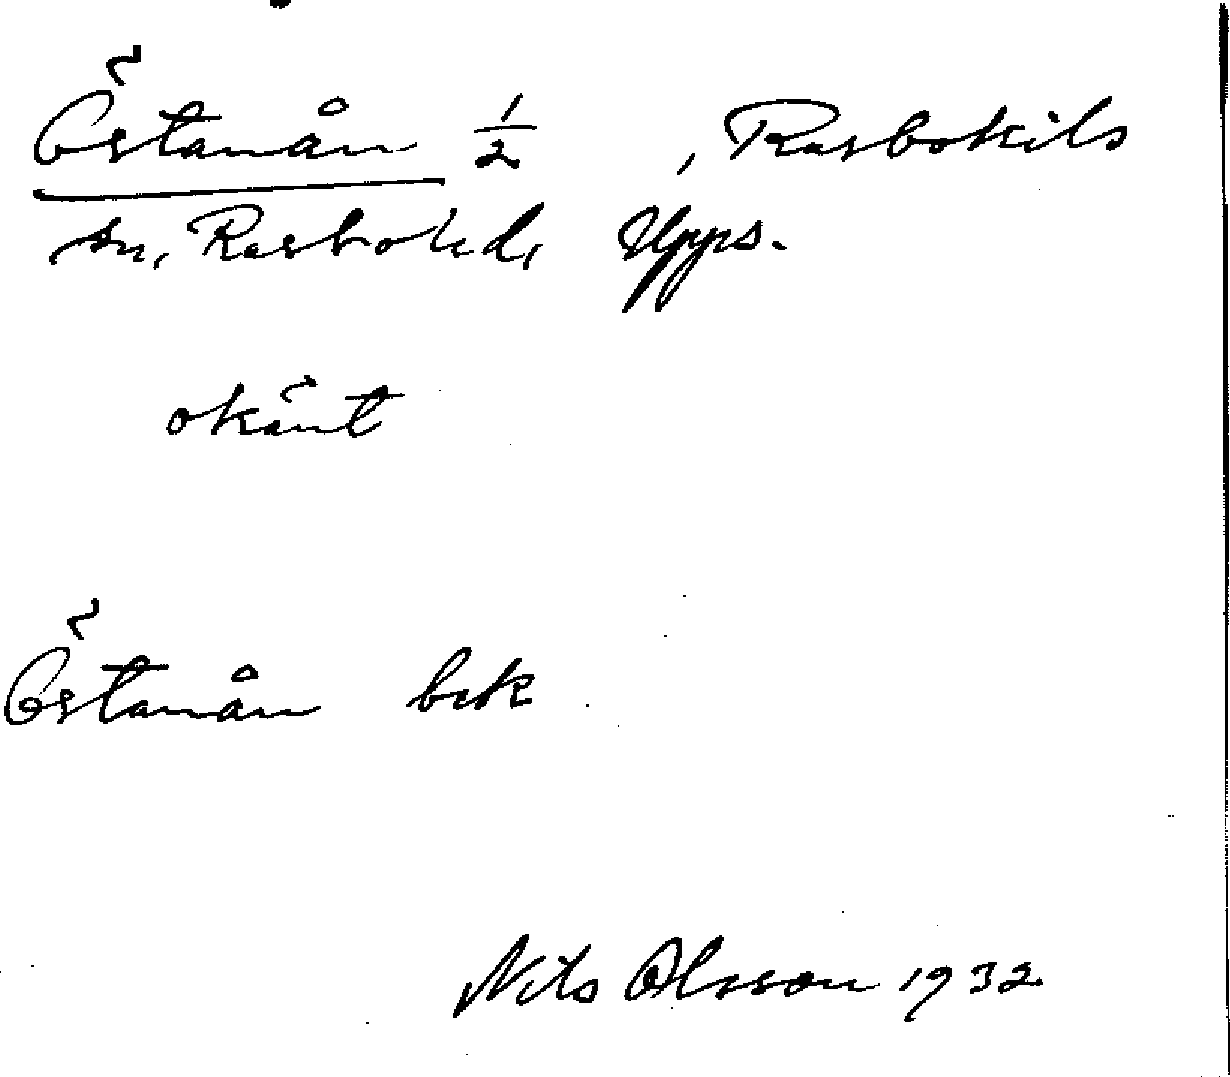 Östanån 1/2 , Rasbokils
sn, Rasbo hd, Upps.
okänt
Östanån bek
Nils Olsson 1932